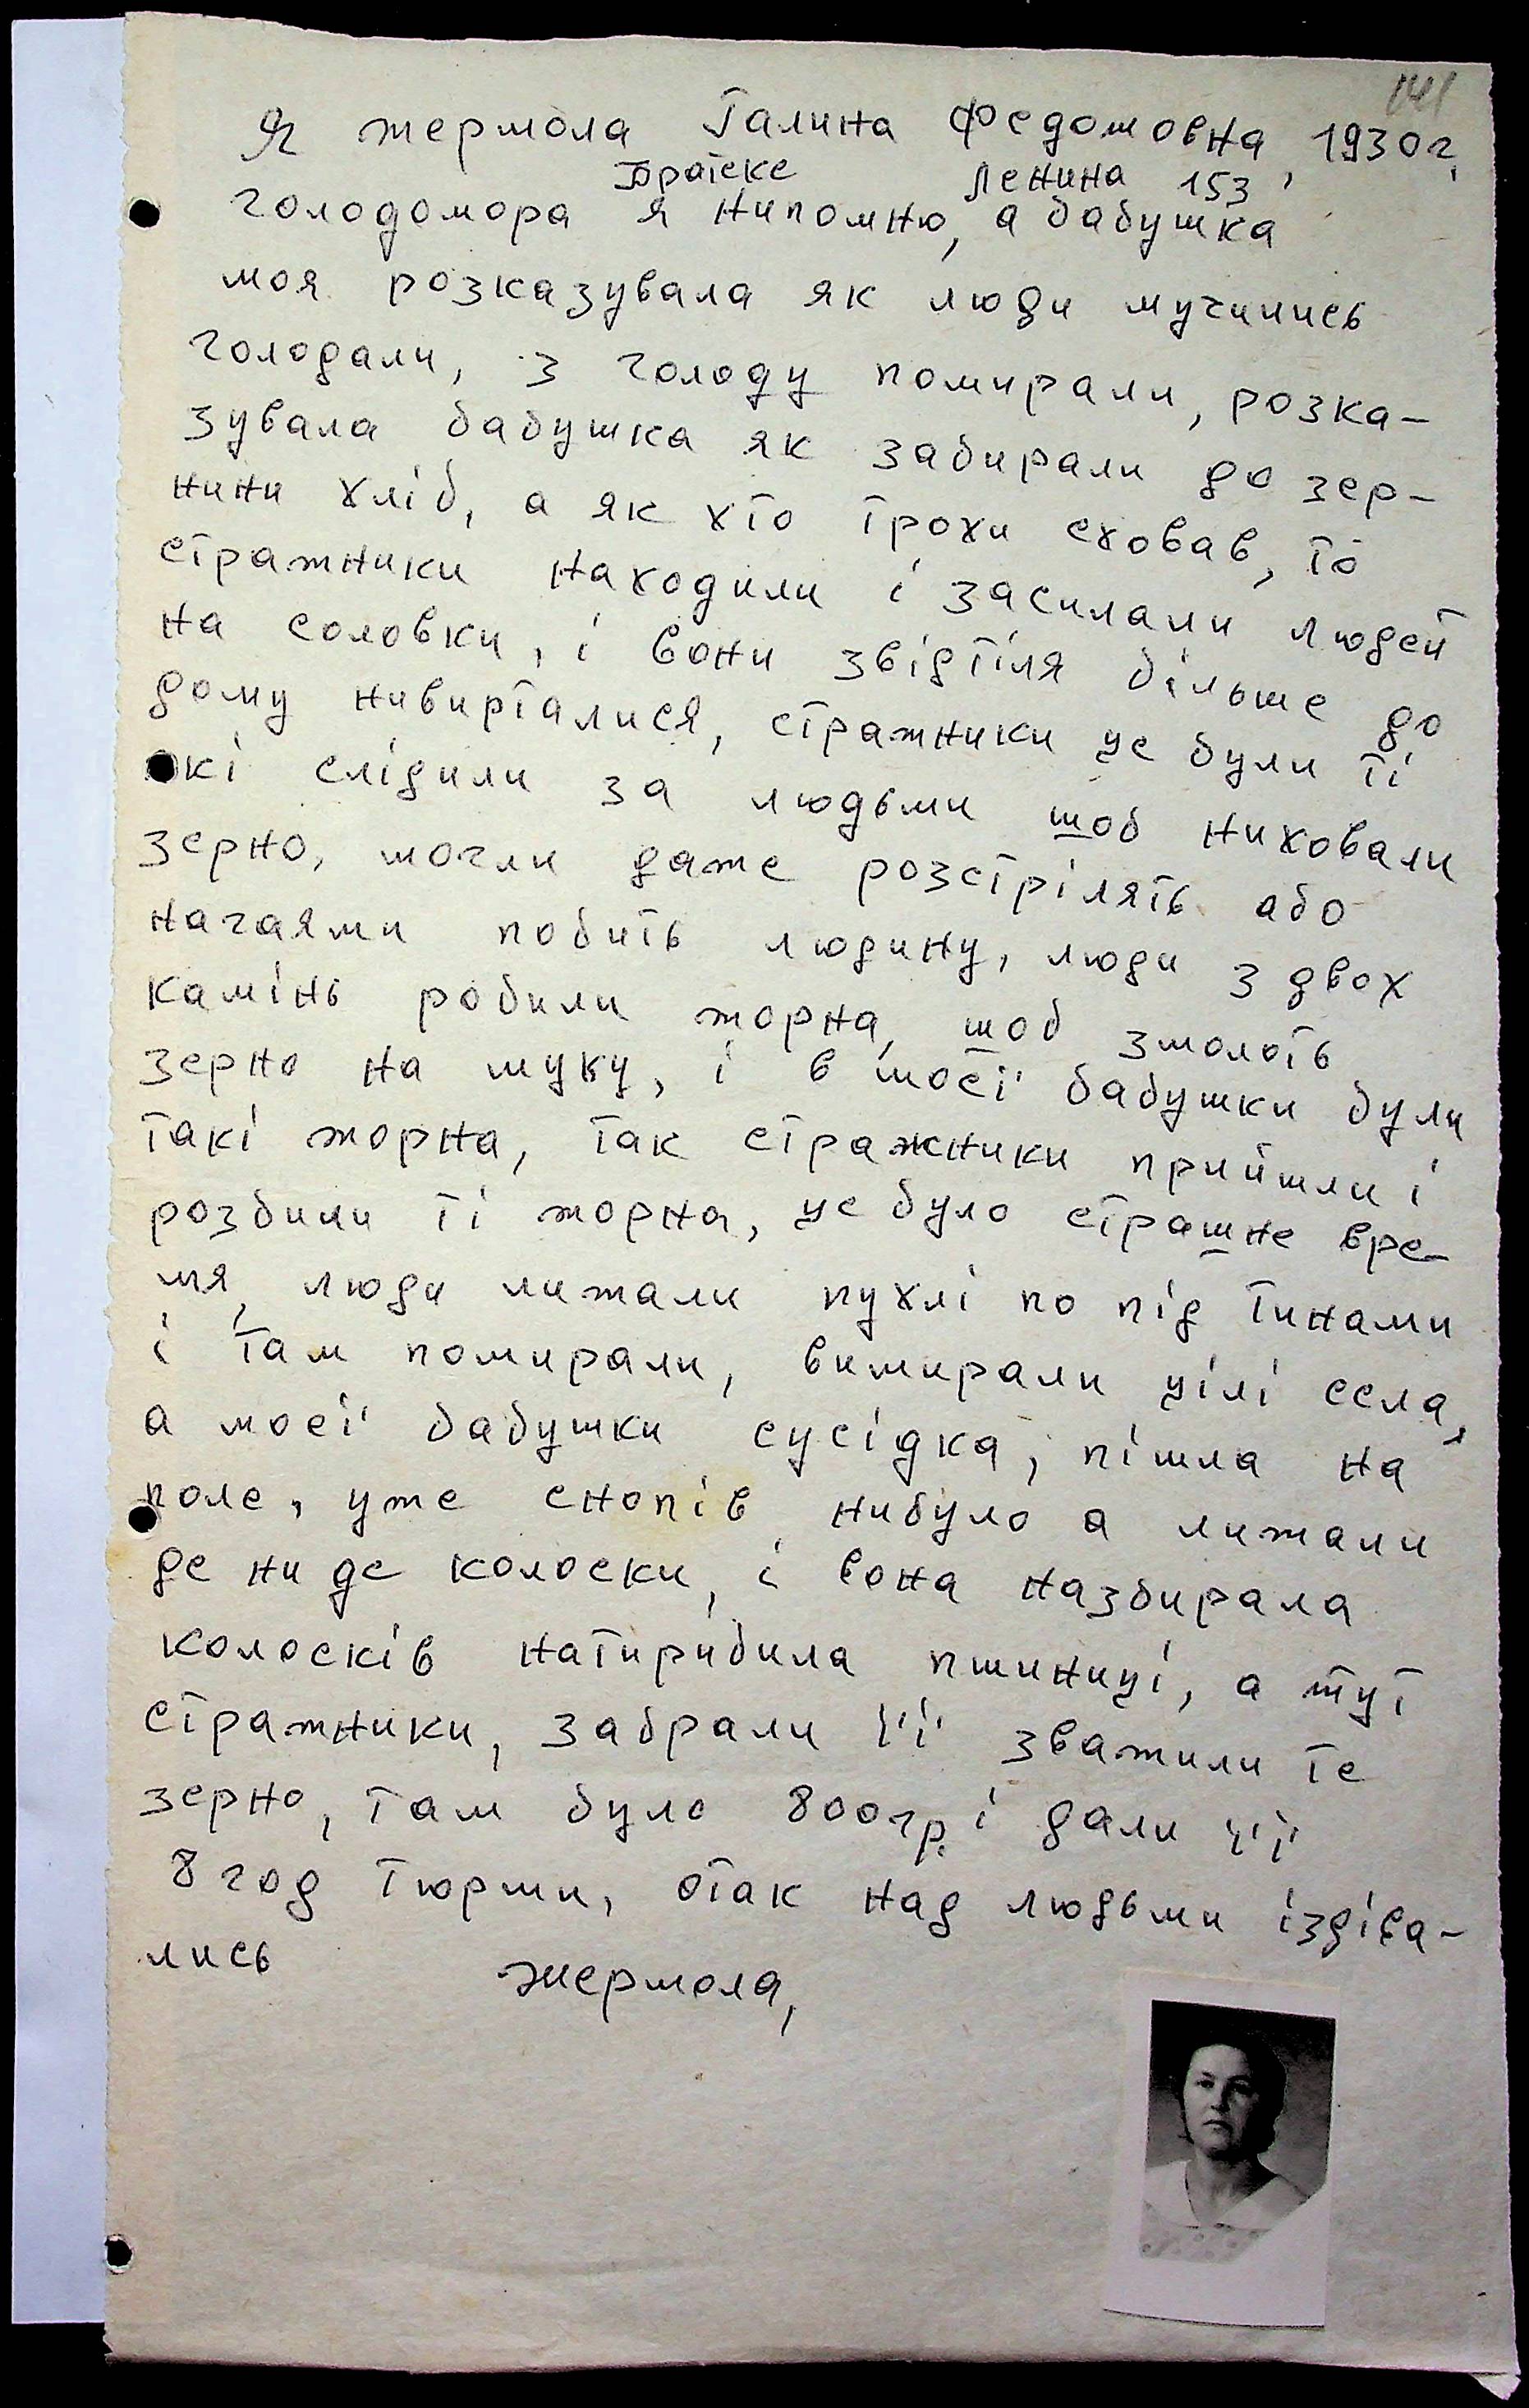 141
Я жермола Галина Федотовна, 1930г,
Братске Ленина 153
голодомора я нипомню, а бабушка
моя розказувала як люди мучились
голодали, з голоду помирали, розка-
зувала бабушка як забирали до зер-
нини хліб, а як хто трохи сховав, то
стражники находили і засилали людей
на соловки, і вони звідтіля більше до
дому нивирталися, стражники це були ті
які слідили за людьми щоб ниховали
зерно, могли даже розстрілять або
нагаями побить людину, люди з двох
камінь робили жорна, щоб змолоть
зерно на муку, і в моєї бабушки були
такі жорна, так стражники прийшли і
розбили ті жорна, це було страшне вре-
мя, люди лижали пухлі по під тинами
і там помирали, вимирали цілі села,
а моєї бабушки сусідка, пішла на
поле, уже снопів нибуло а лижали
де ни де колоски, і вона назбирала
колосків натирибила пшиниці, а тут
стражники, забрали її зважили те
зерно, там було 800гр. і дали її
8 год тюрми, отак над людьми іздіва-
лись жермола,